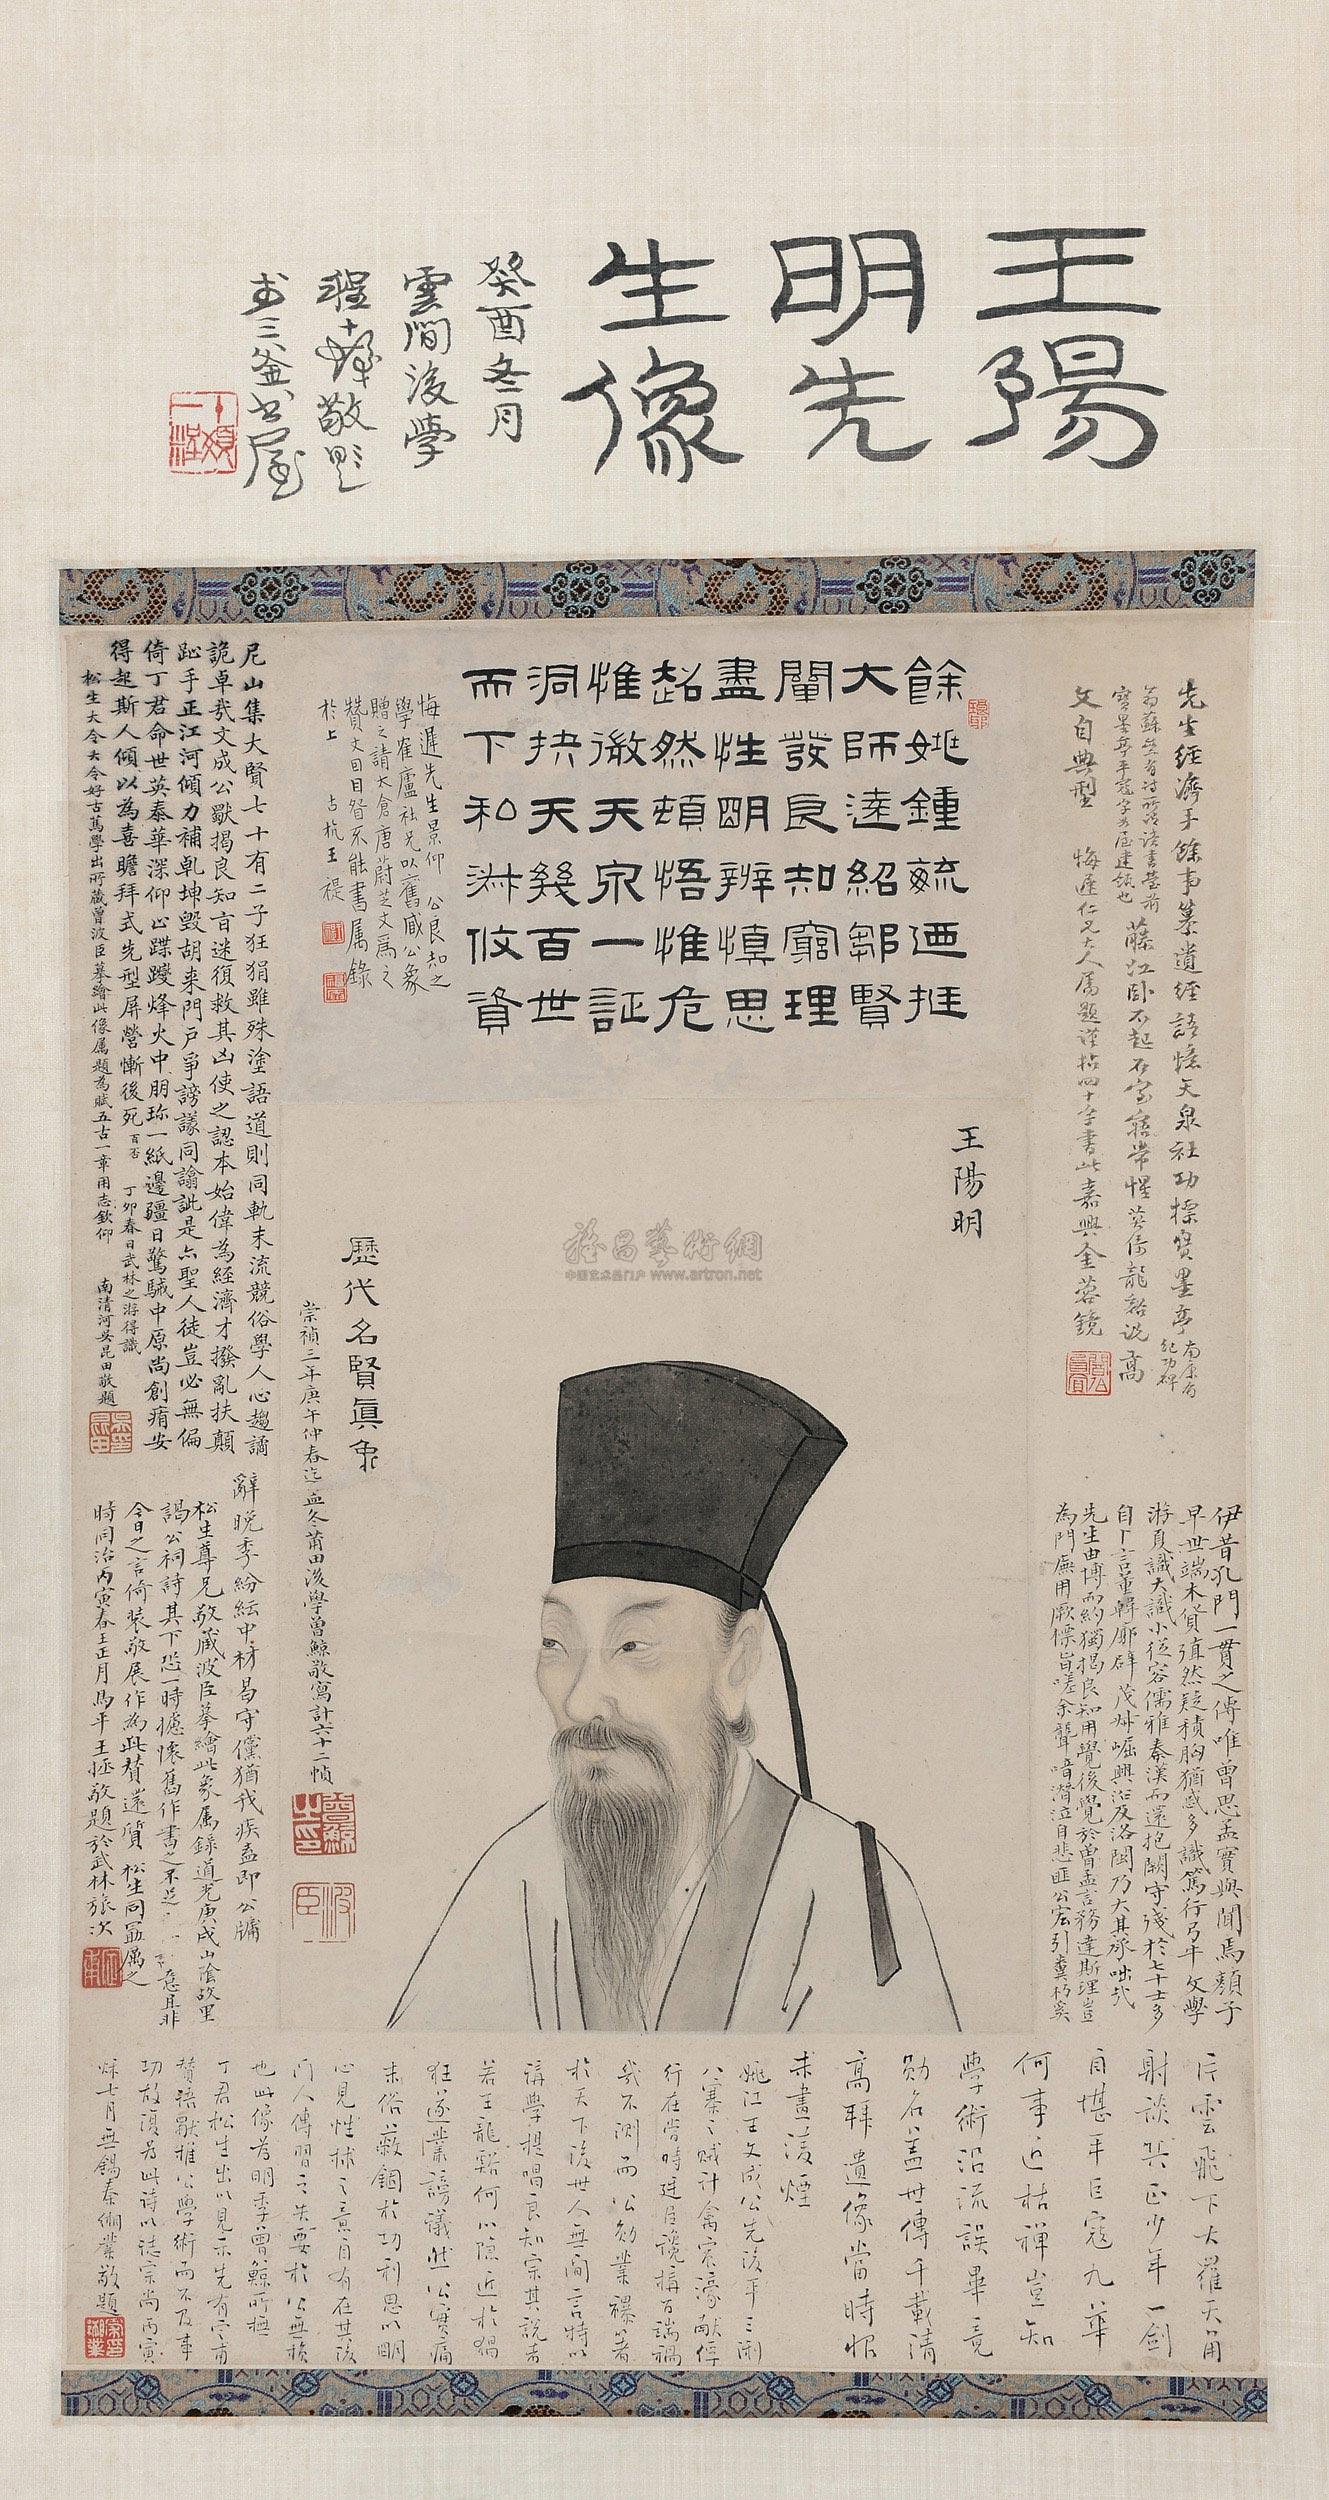 王陽
明先
生像
癸酉冬月
雲間後學
程十髮敬題
於三釜書屋
餘姚鍾毓迺挺
大師遠紹鄒賢
闡發良知窮理
盡性明辨慎思
超然頓悟惟危
惟微天泉一証
洞抉天幾百世
而下和淑攸資
悔遲先生景仰公良知之
學崔廬社兄以舊臧公象
贈之請太倉唐蔚芝文為之
贊文目眚不能書屬錄
於上 古杭王禔
先生經濟手餘事纂遺經語憶天泉社功標寶墨亭
文自典型 悔遲仁兄大人属題謹拈四十字書此嘉興金蓉鏡
尼山集大賢七十有二子狂狷雖殊塗語道則同軌末流競俗學人心趨譎
詭卓哉文成公獨揭良知旨迷復救其凶使之認本始偉為經濟才撥亂扶顛
趾手正江河傾力補乾坤毀胡来門戶爭謗議同謫訿是亦聖人徒豈必無偏
倚丁君命世英泰華深仰止蹀躞烽火中朋珎一紙邊疆日驚駴中原尚創痏安
得起斯人傾以為喜瞻拜式先型屏營慚後死
丁卯春日武林之游得識
松生大令大令好古篤學出所藏曾波臣摹繪此像属題為賦五古一章用志欽仰
南清河吳昆田敬題
王陽明
歷代名賢真象
崇禎三年庚午仲春迄孟冬莆田後學曾鯨敬寫計六十二幀
曾鯨之印
波臣
伊昔孔門一貫之傳唯曾思孟實與聞焉顏子
早世端木貨殖然疑積胸猶惑多識篤行弓牛文學
游夏識大識小從容儒雅秦漢而還抱闕守殘於七十士多
自卜言董韓廓辟茂叔崛興沿及洛閩乃大其承咄哉
先生由博而約獨揭良知用覺後覺於曾孟言務達斯理豈
為門廡用厥標旨嗟余聾喑潛泣自悲匪公宏引糞朽奚
辭晚季紛紜中材曷守儻猶我疾盍即公牖
松生尊兄敬藏波臣摹繪此象属錄道光庚戌山陰故里
謁公祠詩其下恐一時攄懷舊作書之不足
意且非
今日之言倚裝敬展作為此贊還質松生同嵒属之
時同治丙寅春王正月馬平王拯敬題於武林旅次
片雲飛下大羅天角
射談兵正少年一劍
自堪平巨寇九華
何事近枯禪豈知
學術沿流誤畢竟
勛名蓋世傳千載清
高拜遺像當時恨
未畫淩煙
姚江王文成公先後平三浰
八寨之賊計禽宸濠獻俘
行在當時廷臣讒搆百端禍
幾不測而公勛業襮著
於天下後世人無間言特以
講學提唱良知宗其說者
若王龍谿何心隱近於猖
狂遂業謗議然公實痛
末俗蔽錮於功利思以明
心見性捄之意自有在其後
門人傳習之失要於公無損
也此像為明季曾鯨所橅
丁君松生出以見示先有定甫
贊語獨推公學術而不及事
功故復為此詩以誌宗尚丙寅
秌七月無錫秦緗業敬題